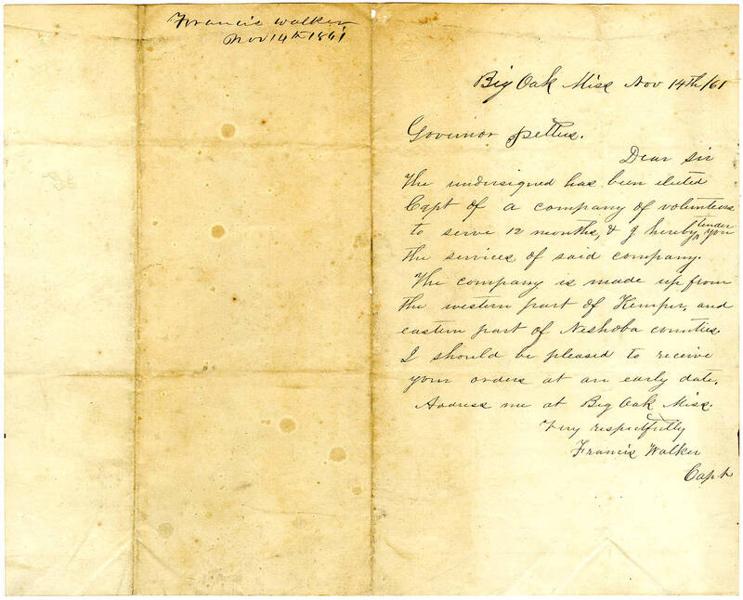 Francis Walker
Nov 14th 1861
Big Oak Miss Nov 14th/61
Governor Pettus.
Dear sir
The undersigned has been elected
Capt of a company of volunteers
to serve 12 months, & I hereby tender you
the services of said company.
The company is made up from
the western part of Kemper, and
eastern part of Neshoba counties.
I should be pleased to receive
your orders at an early date.
Address me at Big Oak Miss.
Very respectfully
Francis Walker
Capt